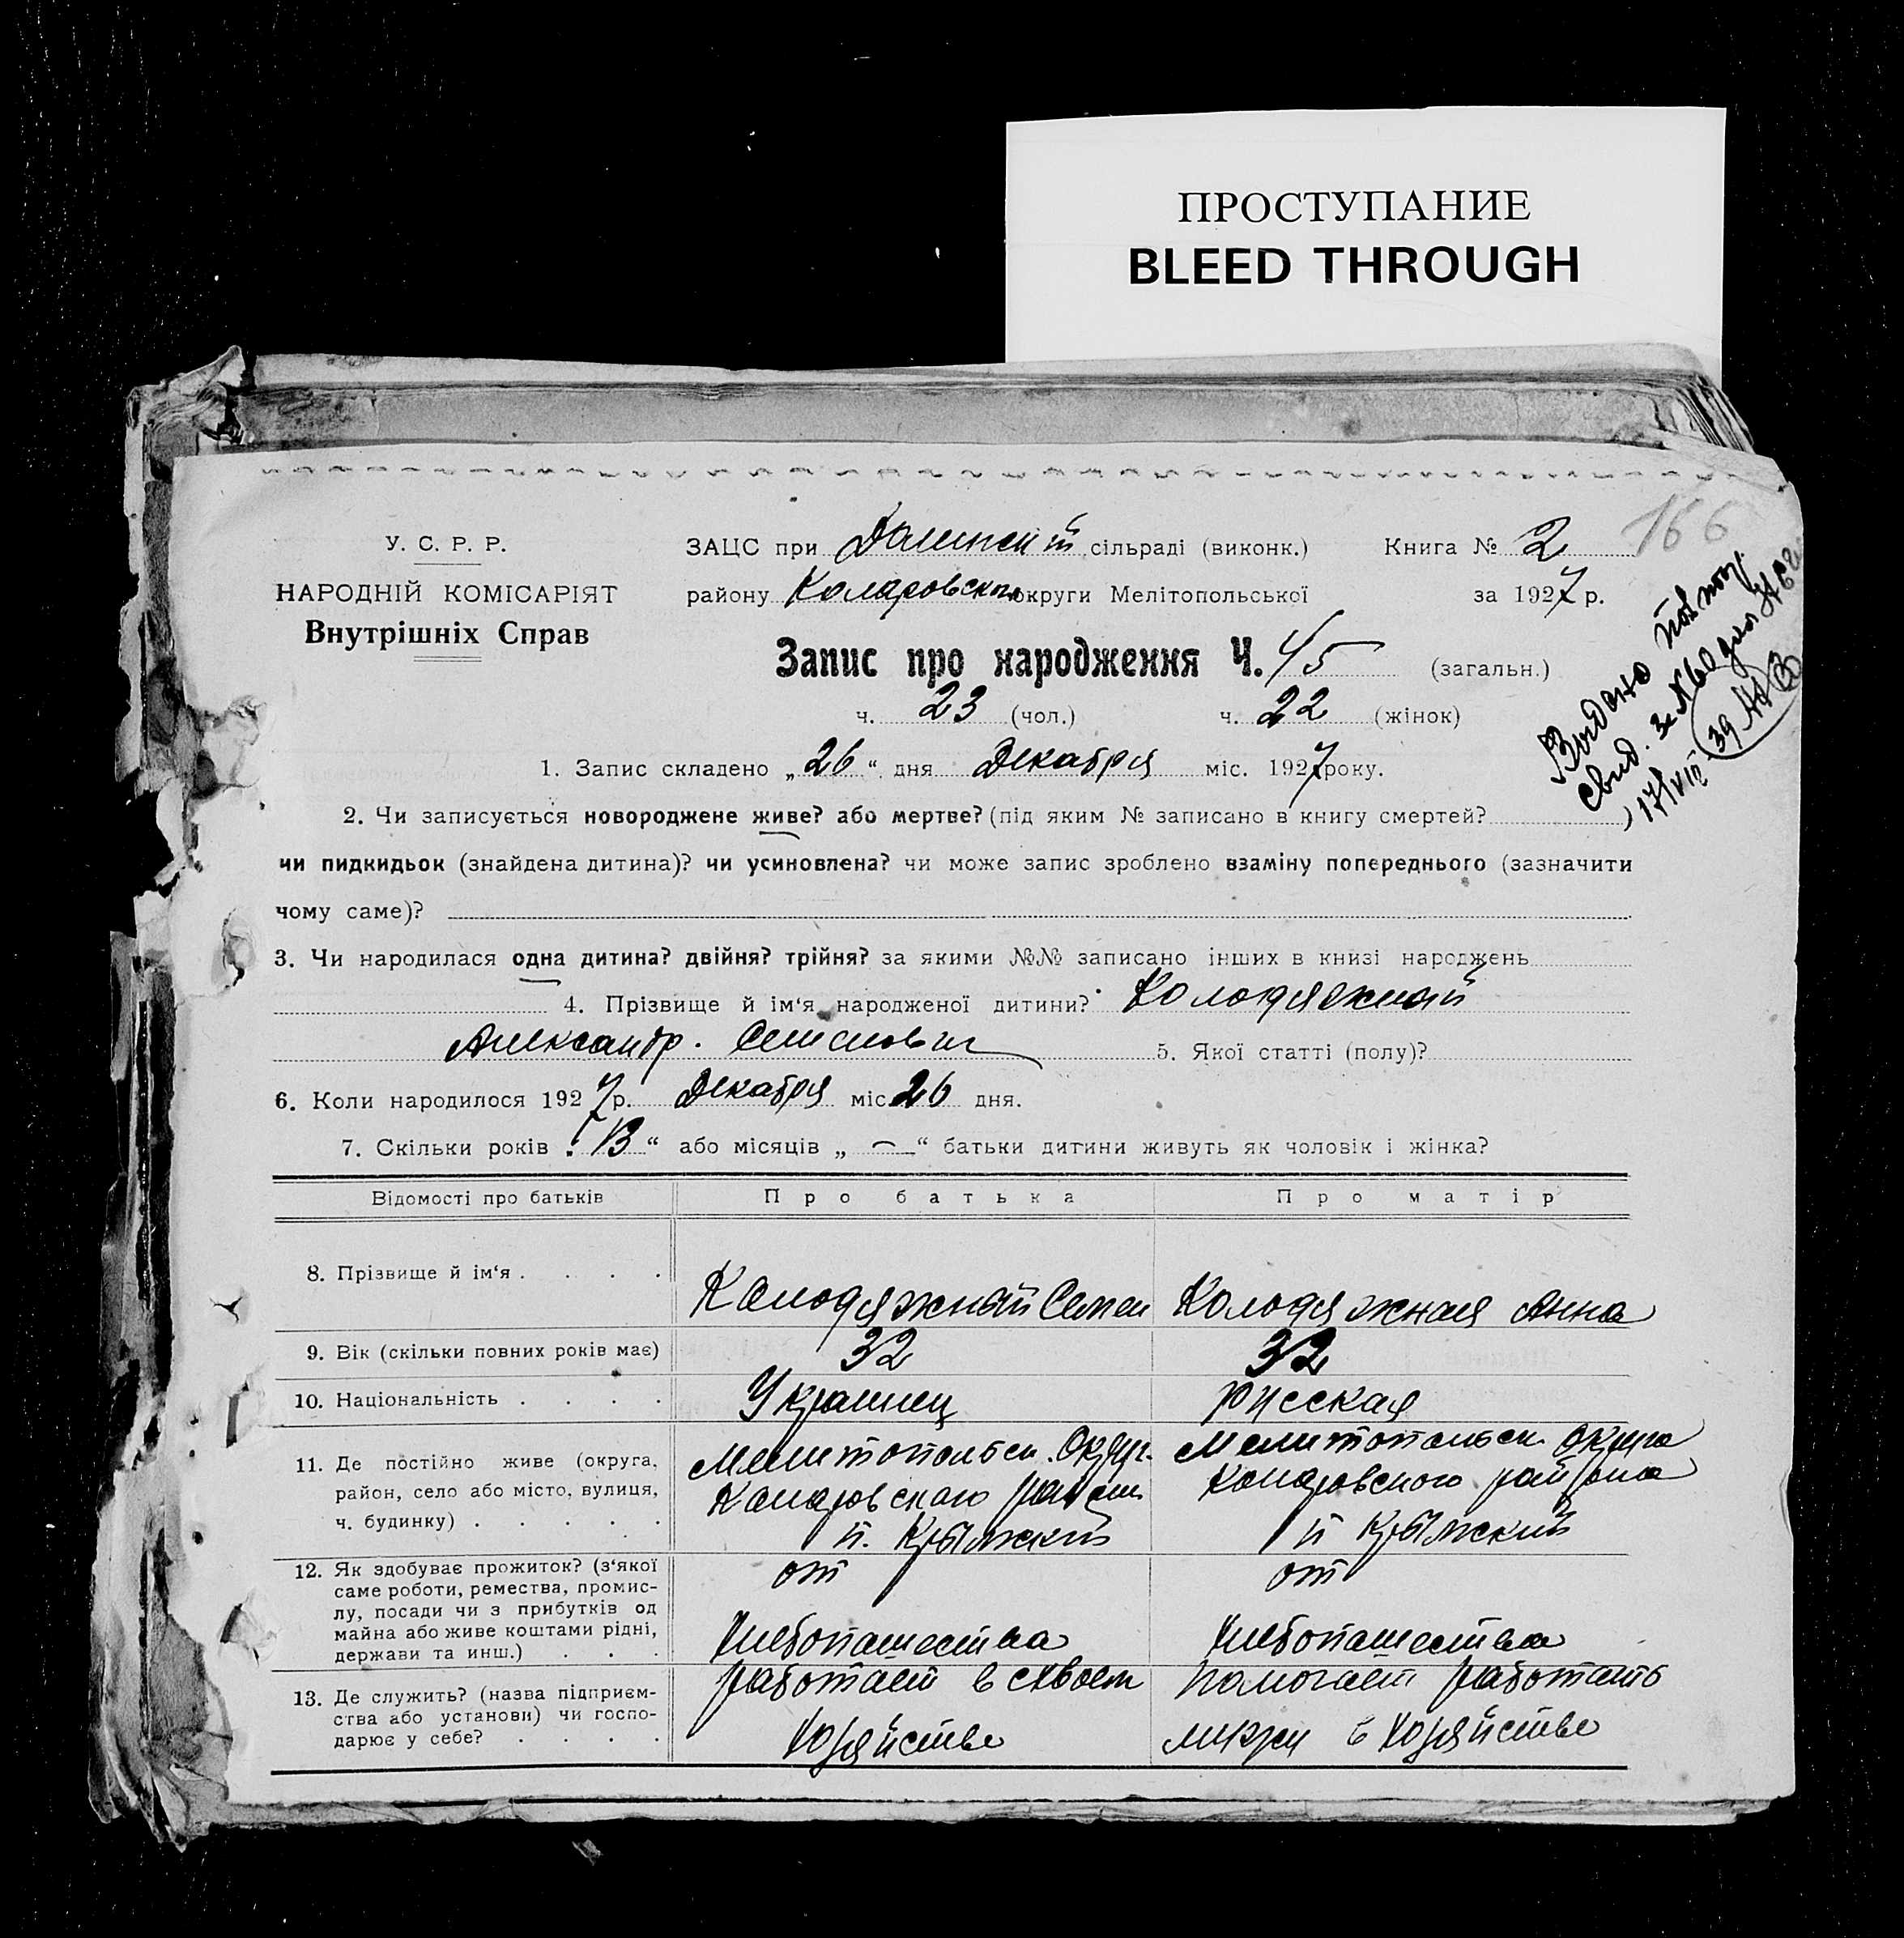 ПРОСТУПАНИЕ
BLEED THROUGH
166
У. С. Р. Р.
НАРОДНІЙ КОМІСАРІЯТ
Внутрішніх Справ
ЗАЦС при сільраді (виконк.) Книга № 2
району Коларовского округи Мелітопольської за 1927 р.
Запис про народження Ч. 45 (загальн.)
ч. 23 (чол.) ч. 22 (жінок)
Выдано повтор.
свид. за №60
17/VIII 39
1. Запис складено „26“ дня Декабря міс. 1927 року.
2. Чи записується новороджене живе? або мертве? (під яким № записано в книгу смертей?
чи пидкидьок (знайдена дитина)? чи усиновлена? чи може запис зроблено взаміну попереднього (зазначити
чому саме)?
3. Чи народилася одна дитина? двійня? трійня? за якими №№ записано інших в книзі народжень
4. Прізвище й ім‘я народженої дитини? Колодяжный
Александр. Семенович 5. Якої статті (полу)?
6. Коли народилося 1927 р. Декабря міс. 26 дня.
7. Скільки років „13“ або місяців „—“ батьки дитини живуть як чоловік і жінка?
Відомості про батьків Про батька Про матір
8. Прізвище й ім‘я . . . . Колодяжный Семен Колодяжная Анна
9. Вік (скільки повних років має) 32 32
10. Національність . . . . Украинец русская
11. Де постійно живе (округа, Мелитопольск. Округ. Мелитопольск. округа
район, село або місто, вулиця, Коларовского район Коларовского района
ч. будинку) . . . . . п. Крымский п Крымский
12. Як здобуває прожиток? (з‘якої от от
саме роботи, ремества, промис-
лу, посади чи з прибутків од
майна або живе коштами рідні, Хлебопашества Хлебопашества
держави та инш.) . . .
13. Де служить? (назва підприєм- работает в своем помогает работать
ства або установи) чи госпо-
дарює у себе? . . . . хозяйстве мужу в хозяйстве